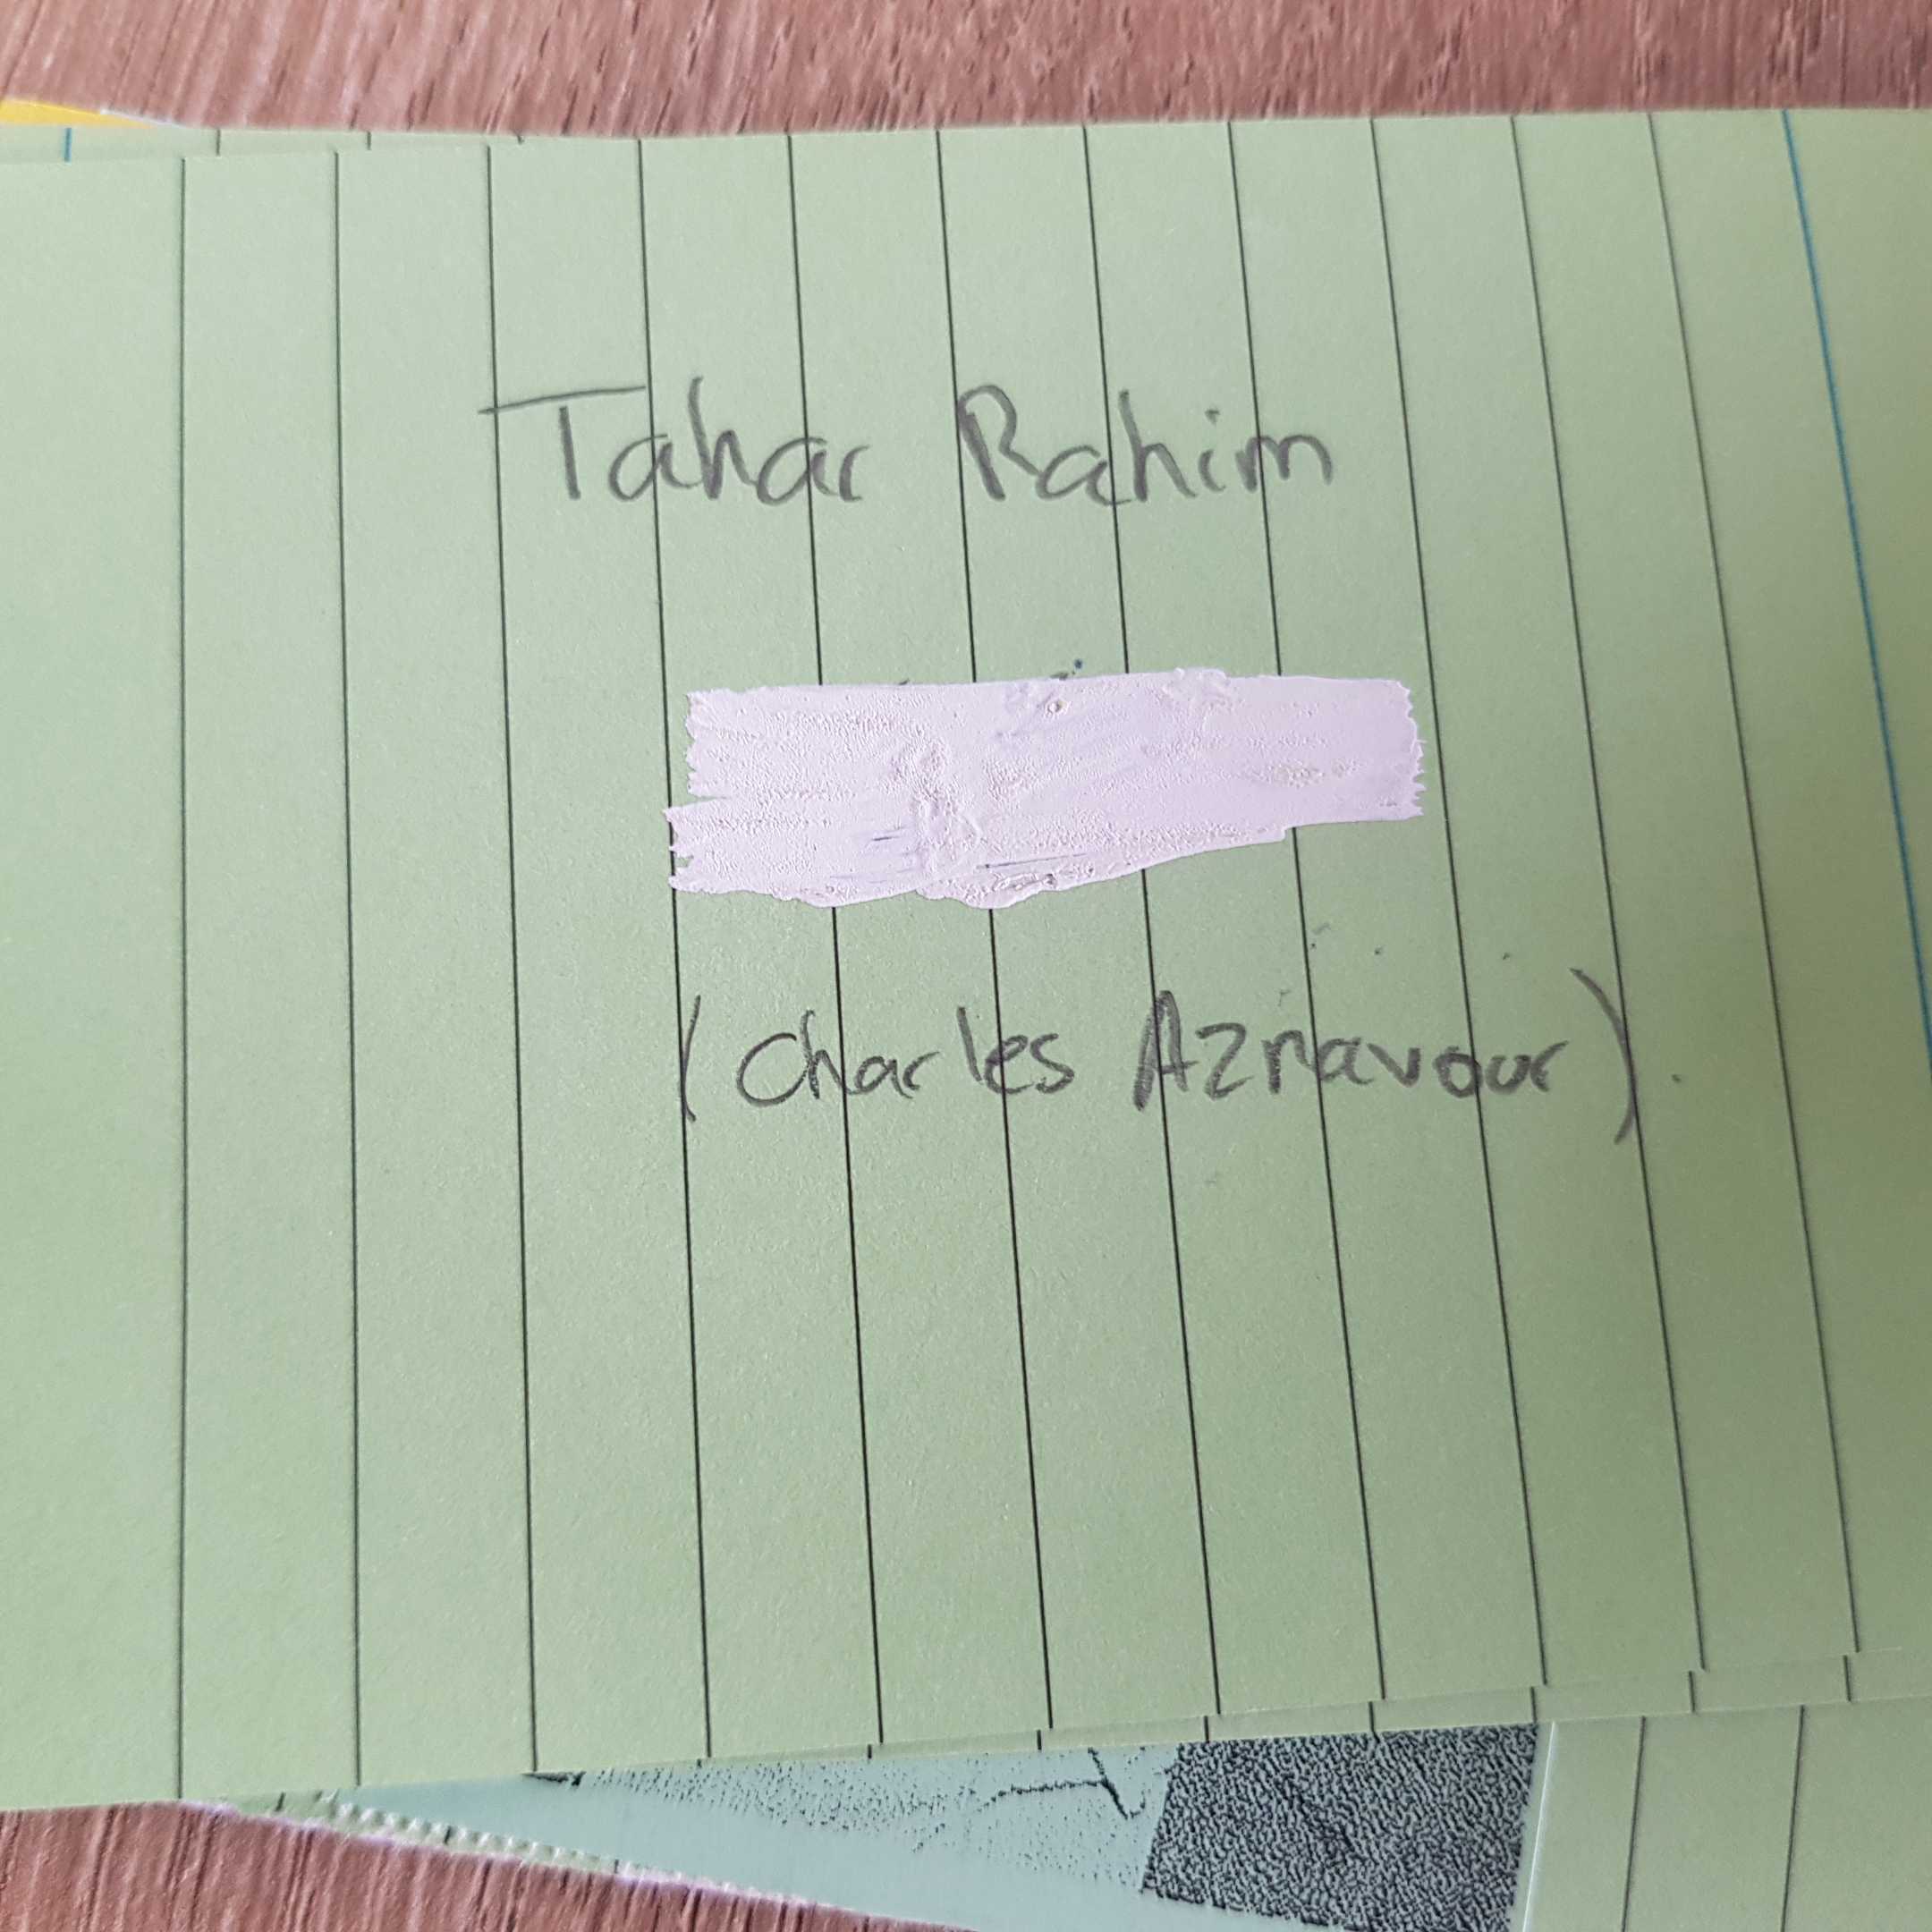 Tahar Rahim
(Charles Aznavour)